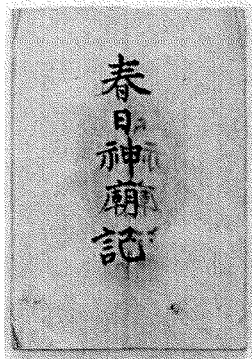 春日神廟記